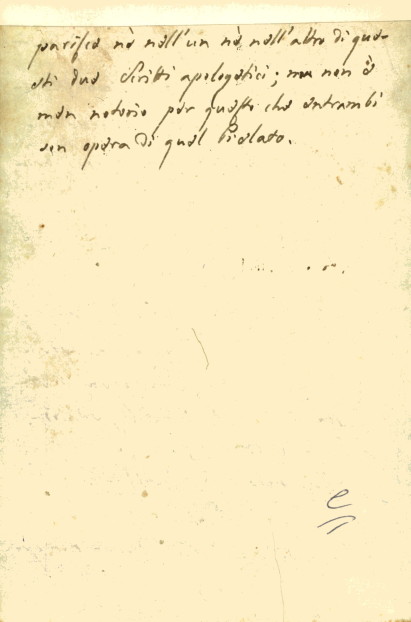 parisca nè nell'un nè nell'altro di que-
sti due scritti apologetici; ma non è
men notorio per questo che entrambi
sien opera di quel Prelato.
e